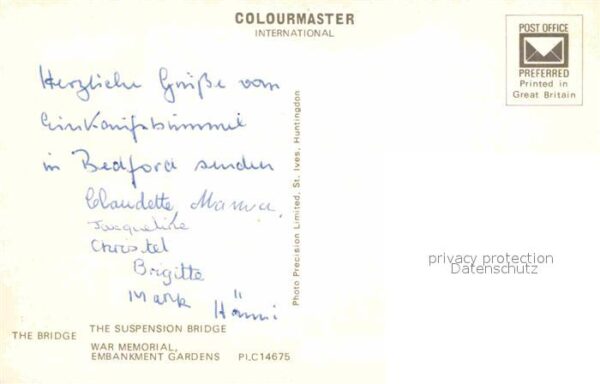 COLOURMASTER
INTERNATIONAL
POST OFFICE
PREFERRED
Printed in
Great Britain
Herzliche Grüße vom
Einkaufsbummel
in Bedford senden
Claudette Marina,
Jacqueline
Christel
Brigitte
Mark Hänni
Photo Precision Limited, St. Ives, Huntingdon
privacy protection
Datenschutz
THE BRIDGE THE SUSPENSION BRIDGE
WAR MEMORIAL,
EMBANKMENT GARDENS PLC14675